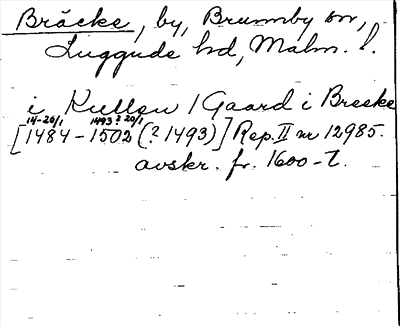 Bräcke, by, Brunnby sn,
Luggude hd, Malm. l.
i Kullen 1 Gaard i Breske
14-20/1 1493? 20/1
[1484-1502 (? 1493)] Rep. II nr 12985.
avskr. fr. 1600-t.